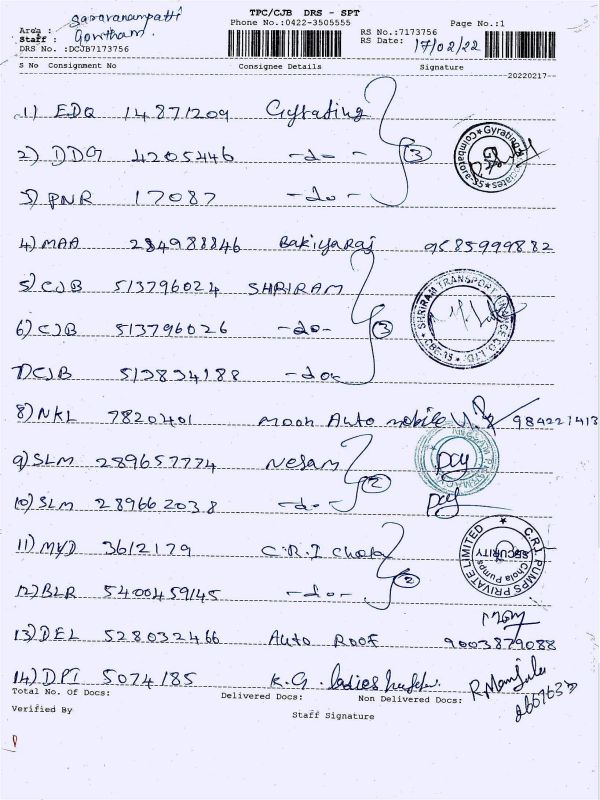 TPC/CJB DRS - SPT
Saravanampatti
Phone No.:0422-3505555 Page No.:1
Area :
Staff : Gowtham.
RS No.:7173756
RS Date: 17/02/22
DRS No. :DCJB7173756
S No Consignment No Consignee Details Signature
20220217
1) EDQ 14871209 Gyrating
2) DDG 4205446 -do- 3
3) PNR 17087 -do-
4) MAA 284988846 Bakiyaraj 9585999882
5) CJB 513796024 SHRIRAM
6) CJB 513796026 -do- 3
7) CJB 513834188 -do-
8) NKL 7820401 Moon Auto mobile 984221413
9) SLM 289657774 Nesam
10) SLM 289662038 -do- 2
11) MYD 3612179 C.R.I Chola
12) BLR 5400459145 -do- 2
13) DEL 528032466 Auto Roof 9003879088
14) DPI 5074185 K.G. ladies R.Manjula
Total No. Of Docs: Delivered Docs: Non Delivered Docs:
Verified By Staff Signature
SHRIRAM TRANSPORT FINANCE CO. LTD. CBE-35
C.R.I. PUMPS PRIVATE LIMITED
Chola Pumps
SECURITY